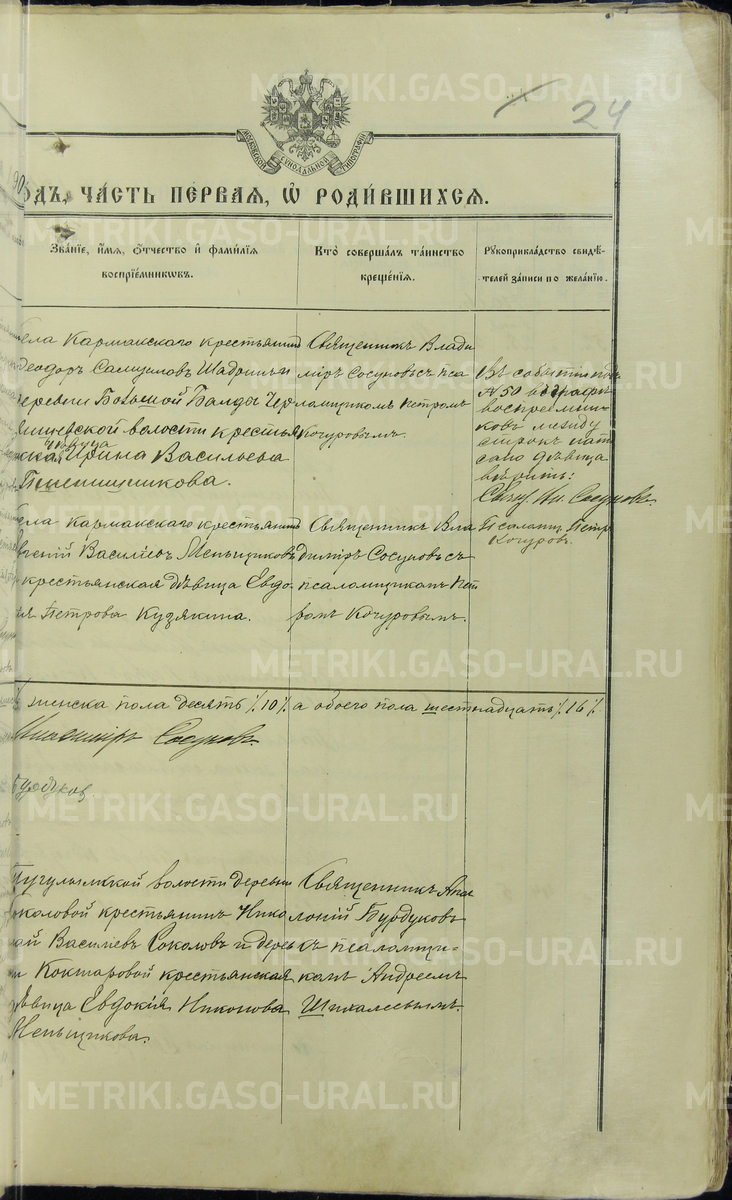 METRIKI.GASO-URAL.RU
24
МОСКОВСКОЙ СѴНОДАЛЬНОЙ ТИПОГРАФІИ
одъ, часть первая, ѡ родившихся.
Званіе, имя, отчество и фамилія воспріемниковъ.
Кто совершалъ таинство крещенія.
Рукоприкладство свидѣтелей записи по желанію.
ела Кармакскаго крестьянинъ
еодоръ Самуиловъ Шадринъ и
деревни Большой Балды Чер
ской волости крестьян
ская дѣвица Ирина Васильева
Пшеничникова.
Священникъ Влади
міръ Сосуновъ съ пса
ломщикомъ Петромъ
Кочуровымъ.
Въ событіи подъ
№ 50 в графѣ
воспреемни
ковъ между
строкъ напи
сано дѣвица
вѣрить:
Свящ. Вл. Сосуновъ
Псаломщ. Петръ
Кочуровъ
ела Кармакскаго крестьянинъ
геній Василіевъ Меньщиковъ
крестьянская дѣвица Евдо
ія Петрова Кузякина.
Священникъ Вла
димиръ Сосуновъ съ
псаломщикомъ Пет
ромъ Кочуровымъ.
женска пола десять ٪10٪ а обоего пола шестнадцать ٪16٪
Владимиръ Сосуновъ
Бурдуков
Тугулымской волости деревни
околовой крестьянинъ Нико
лай Василіевъ Соколовъ и дерев
ни Кокшаровой крестьянская
дѣвица Евдокія Никонова
Меньщикова.
Священникъ Апол
лоній Бурдуковъ
съ псаломщи-
комъ Андреемъ
Шихалевымъ.